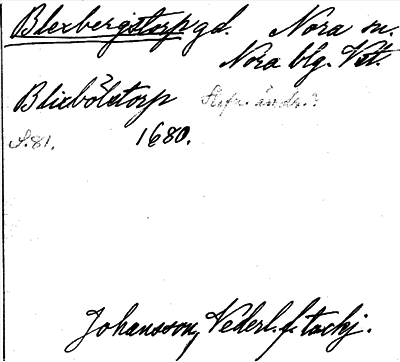 Blexbergstorp gd. Nora sn.
Nora blg. Vstl.
Blixbôletorp Stfr. ändr.?
S. 81. 1680.
Johansson, Nederl. f. tackj.